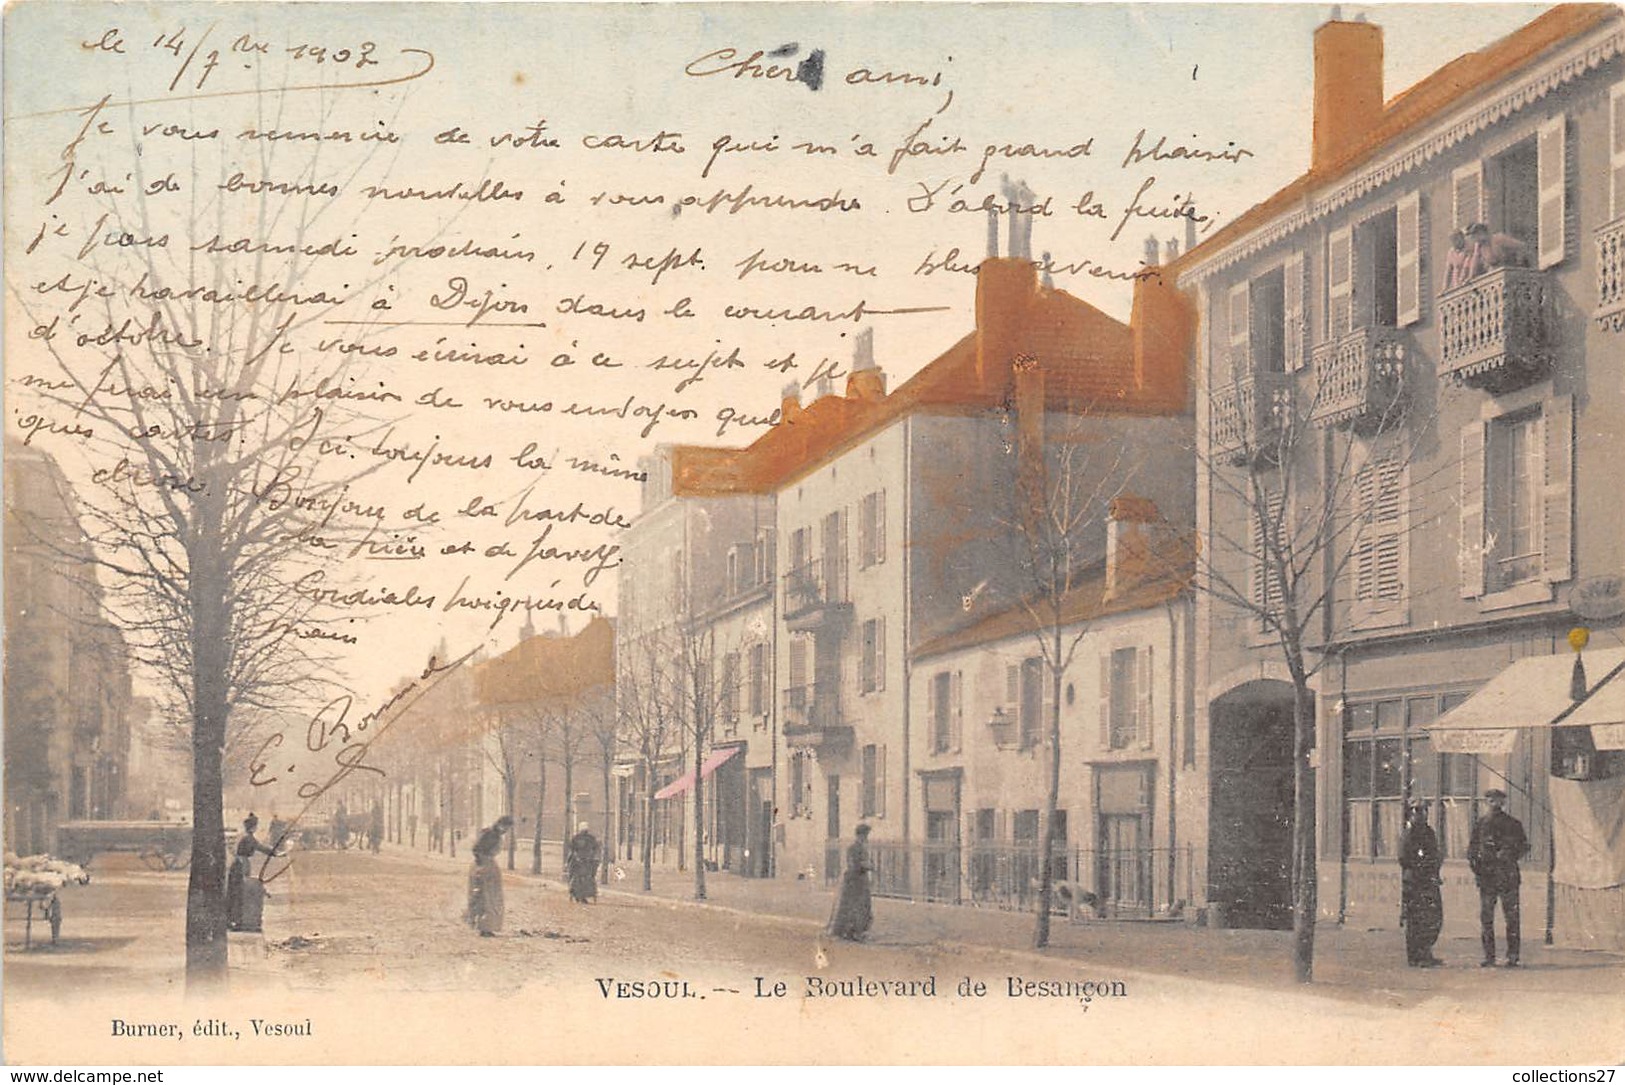 le 14/7bre 1903
Chère ami,
Je vous remercie de votre carte qui m'a fait grand plaisir
J'ai de bonnes nouvelles à vous apprendre. D'abord la fuite,
je pars samedi prochain, 19 sept. pour ne plus revenir.
et je travaillerai à Dijon dans le courant
d'octobre. Je vous écrirai à ce sujet et je
me ferai un plaisir de vous envoyer quel-
ques cartes. Ici toujours la même
chose. Bonjour de la part de
la et de
Cordiales poignées de
main
E.
VESOUL. -- Le Boulevard de Besançon
Burner, édit., Vesoul
collections27